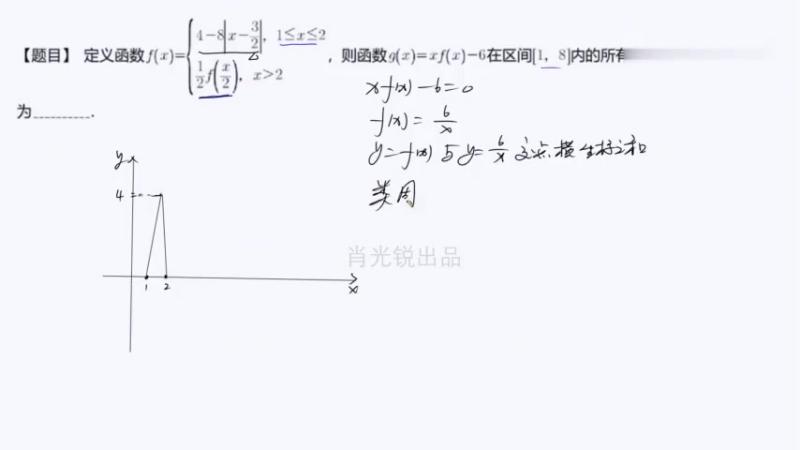 【题目】 定义函数f(x)={4-8|x-3/2|, 1≤x≤2
1/2 f(x/2), x>2
, 则函数g(x)=xf(x)-6在区间[1, 8]内的所有
为__________.
xf(x)-6=0
f(x)=6/x
y=f(x)与y=6/x交点横坐标之和
类周
y
4
1 2 x
肖光锐出品